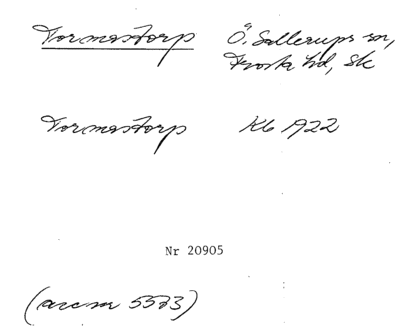 Tormastorp Ö. Sallerups sn,
Frosta hd, Sk
Tormastorp Kb 1922
Nr 20905
(acc nr 5573)